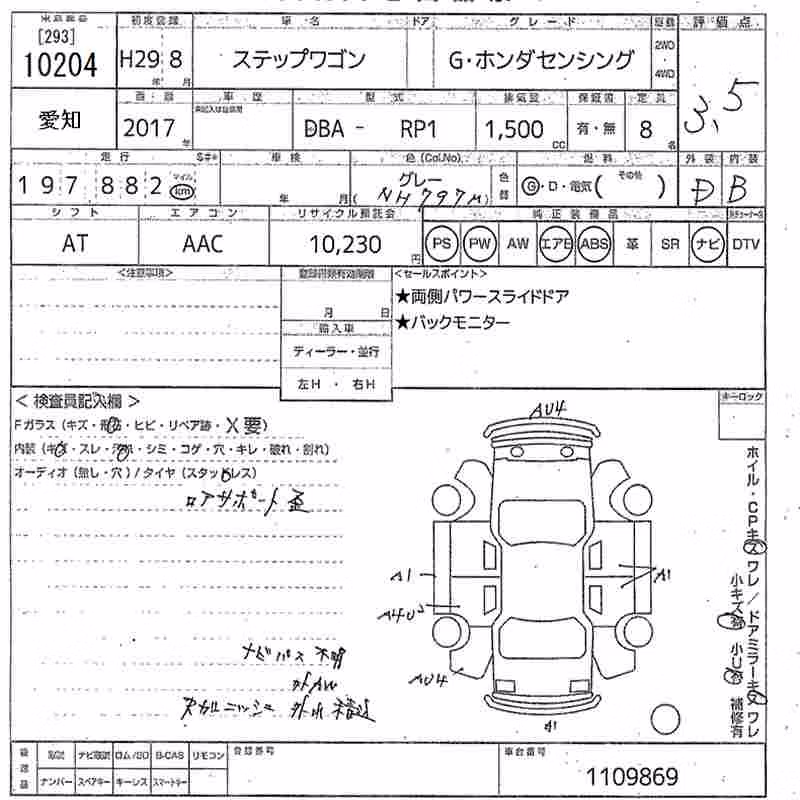 [293]
10204
初度登録
H29 8
年 月
車名
ステップワゴン
ドア
グレード
G・ホンダセンシング
2WD
・
4WD
評価点
3.5
愛知
2017
年
車歴
型式
DBA - RP1
排気量
1,500
CC
保証書
有・無
定員
8
名
走行
197882
マイル
km
車検
年 月
色(Col.No)
グレー
(NH797M)
燃料
G・D・電気( その他 )
外装
D
内装
B
シフト
AT
エアコン
AAC
リサイクル預託金
10,230
円
純正装備品
PS PW AW エアB ABS 革 SR ナビ DTV
<注意事項>
月 日
輸入車
ディーラー・並行
左H ・ 右H
<セールスポイント>
★両側パワースライドドア
★バックモニター
キーロック
< 検査員記入欄 >
Fガラス(キズ・飛石・ヒビ・リペア跡・X要)
内装(キズ・スレ・汚れ・シミ・コゲ・穴・キレ・破れ・割れ)
オーディオ(無し・穴)/タイヤ(スタッドレス)
ロアサポート歪
ナビパス不明
外AW
AU4
A1
A4U2
A1
AU4
A1
ホイル・CPキズワレ/ドアミラーキズワレ
小キズ有 小U有 補修有
ナビ取説 ロム/SD B-CAS リモコン
ナンバー スペアキー キーレス スマートキー
登録番号
車台番号
1109869